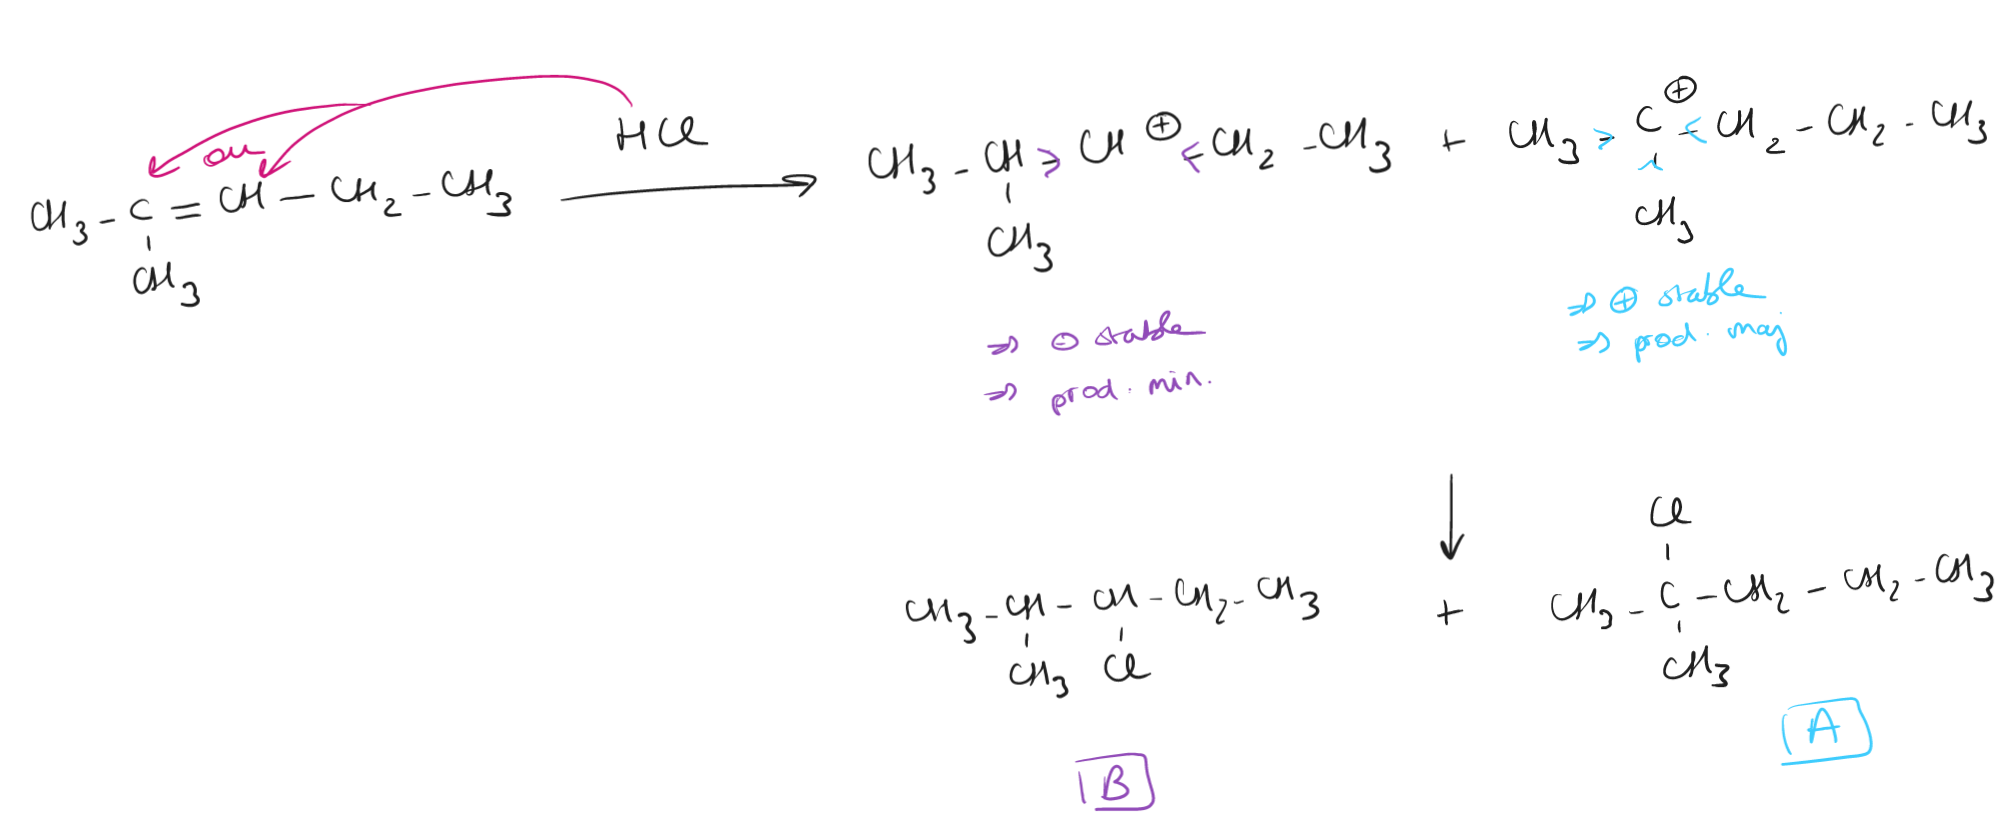 HCl
ou
CH3 - C = CH - CH2 - CH3
CH3
CH3 - CH - CH ⊕ - CH2 - CH3 + CH3 - C ⊕ - CH2 - CH2 - CH3
CH3
CH3
⇒ ⊖ stable
⇒ prod. min.
⇒ ⊕ stable
⇒ prod. maj
Cl
CH3 - CH - CH - CH2 - CH3 + CH3 - C - CH2 - CH2 - CH3
CH3 Cl
CH3
B
A